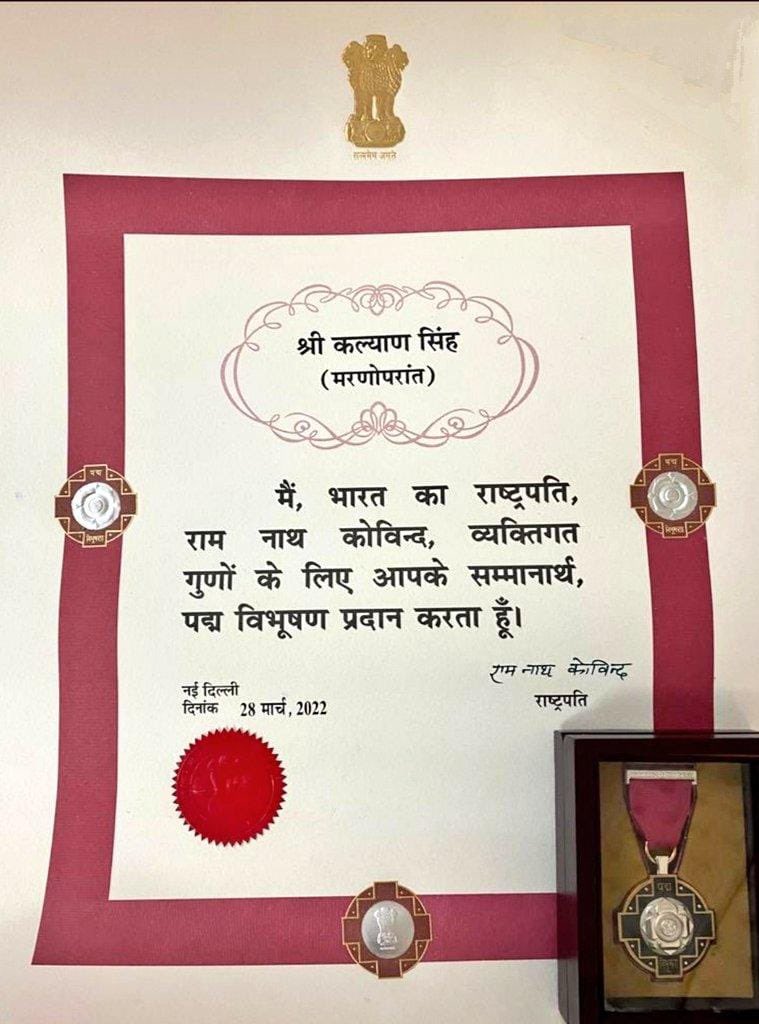 सत्यमेव जयते
श्री कल्याण सिंह
(मरणोपरांत)
पद्म
विभूषण
पद्म
विभूषण
मैं, भारत का राष्ट्रपति,
राम नाथ कोविन्द, व्यक्तिगत
गुणों के लिए आपके सम्मानार्थ,
पद्म विभूषण प्रदान करता हूँ।
राम नाथ कोविन्द
राष्ट्रपति
नई दिल्ली
दिनांक 28 मार्च, 2022
पद्म
विभूषण